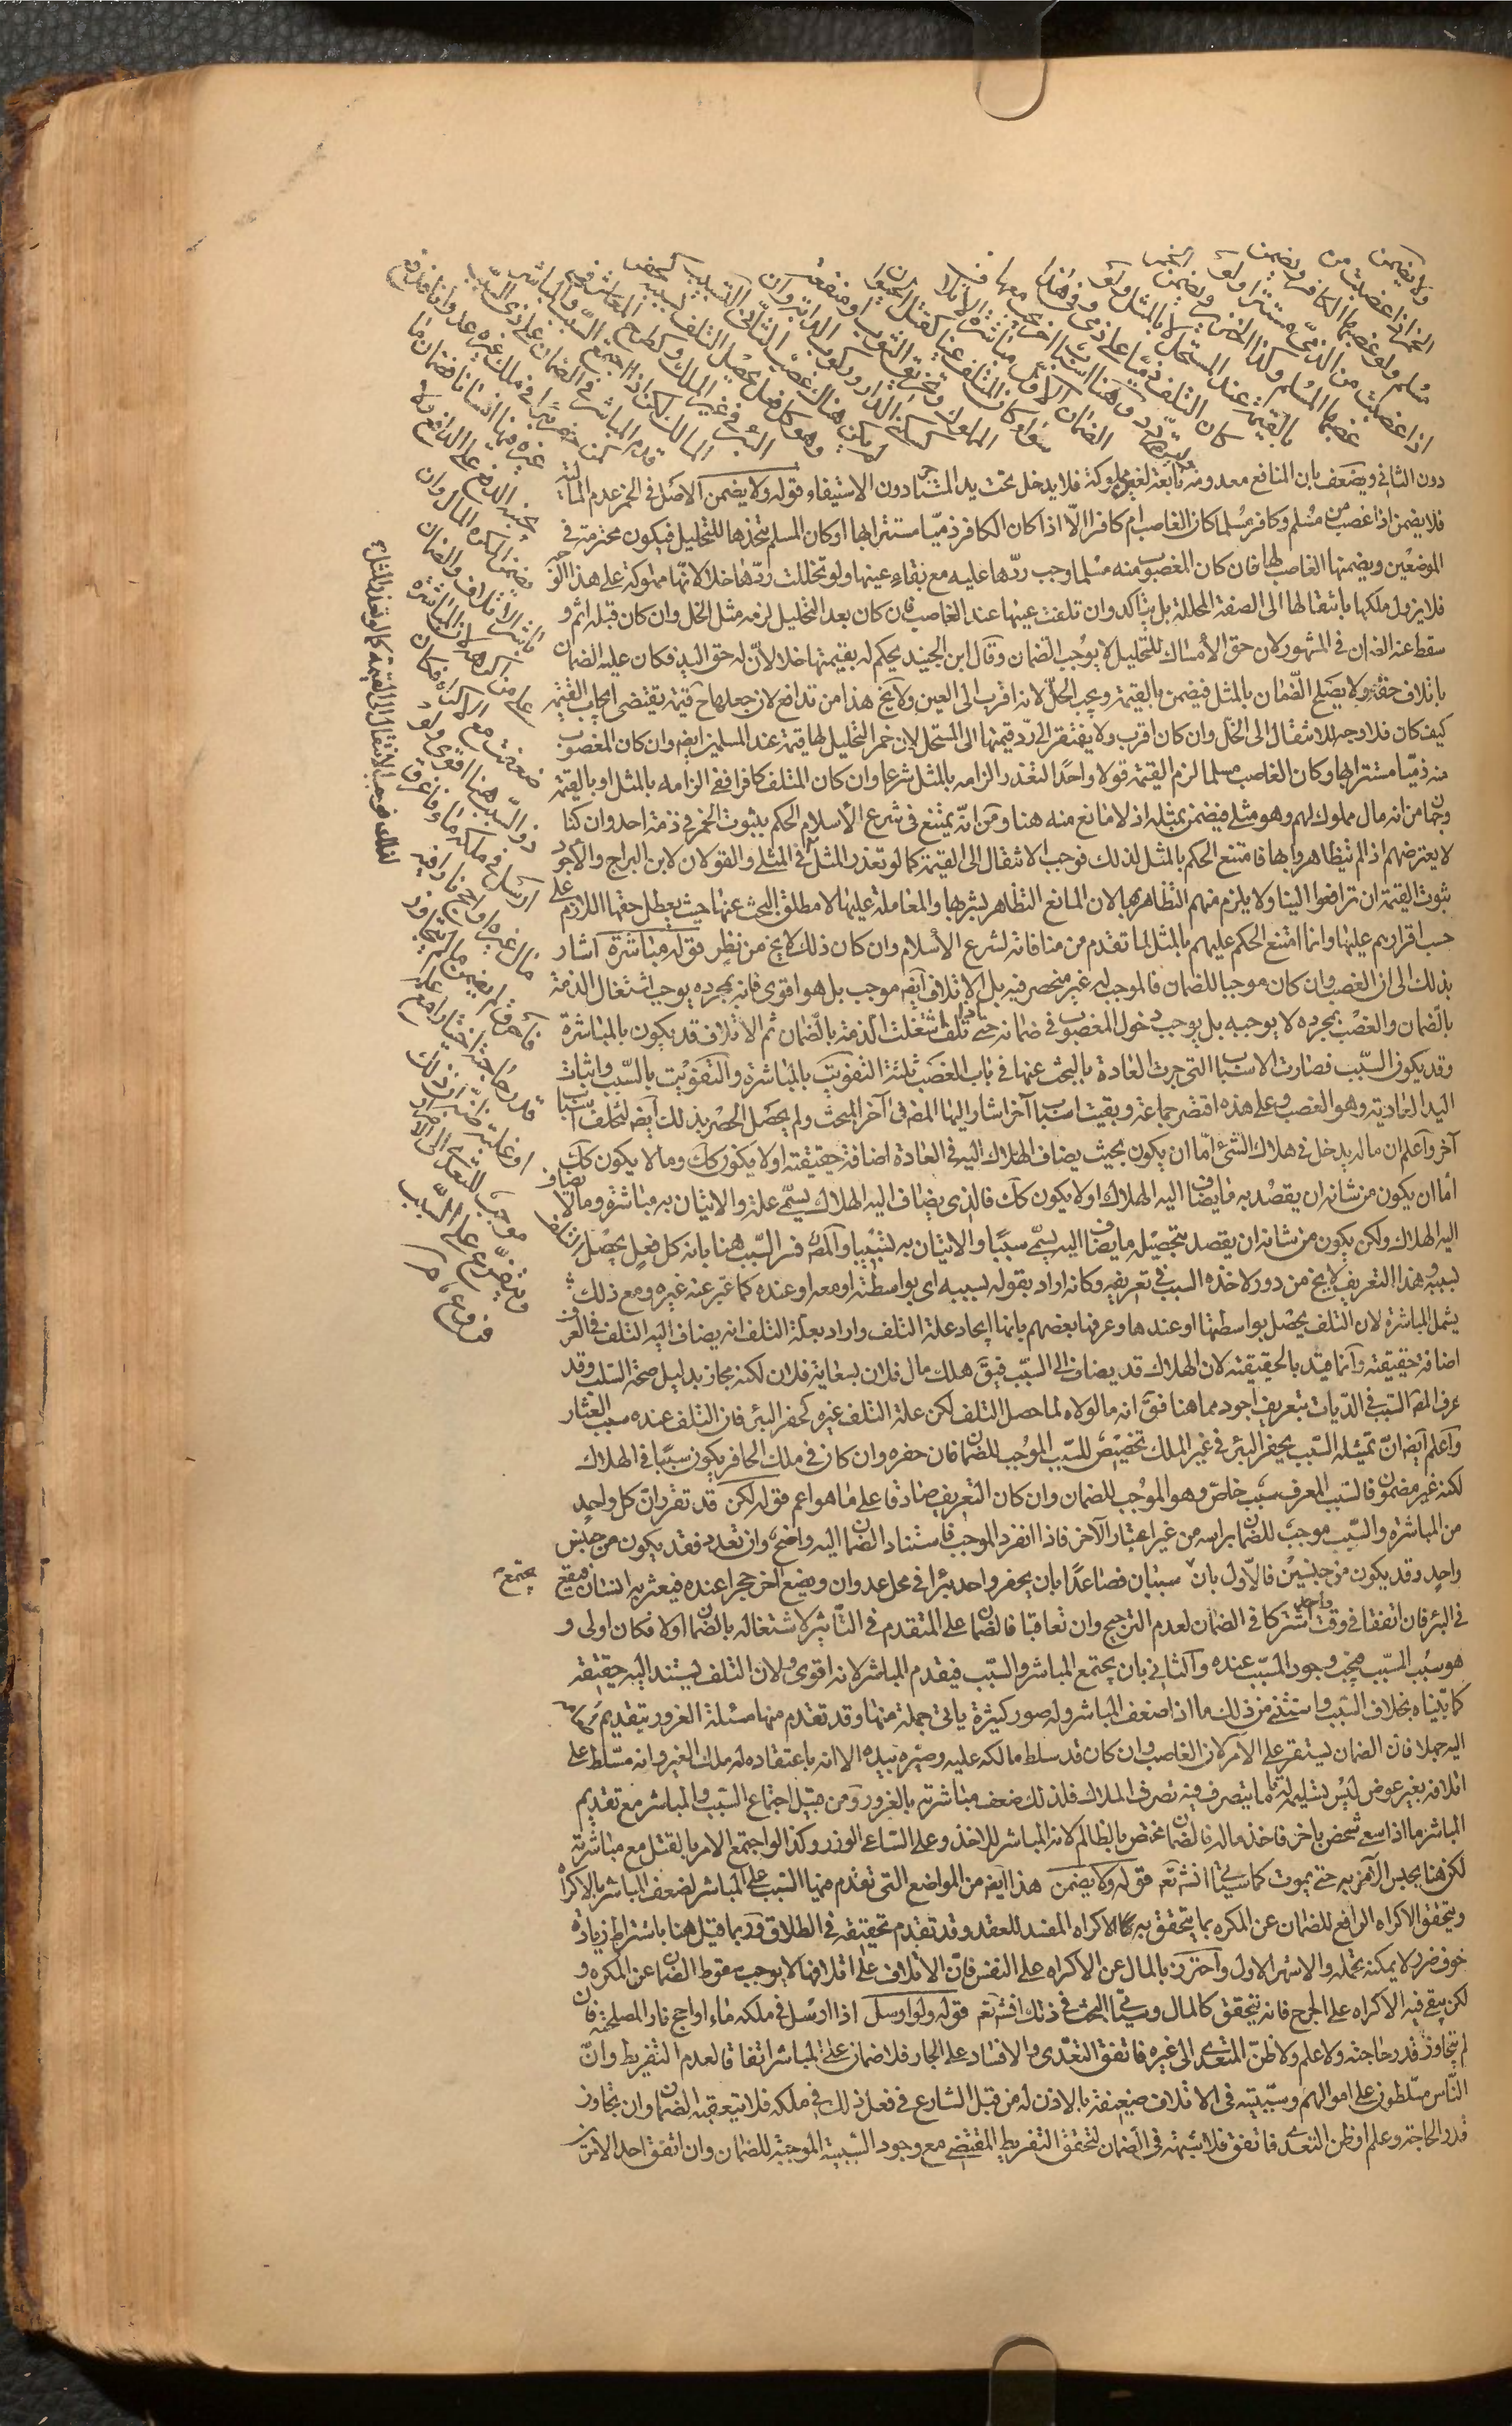 ولا يضمن
الخمر اذا غصبت من
مسلم ولو غصبها الكافر ويضمن
اذا غصبت من الذمي مستترا ولو
غصبها المسلم وكذا الخنزير ويضمن الخمر
بالقيمة عند المستحل لا بالمثل ولو
كان المتلف ذميا على ذمي وفي هذا
تردد وهنا اسباب اخر يجب معها
الضمان الاول مباشرة الاتلاف
سواء كان المتلف عينا كقتل الحيوان
المملوك وتخريق الثوب او منفعة
كسكنى الدار وركوب الدابة وان
لم يكن هناك غصب الثاني التسبيب
وهو كل فعل يحصل التلف بسببه كحفر
البئر في غير الملك وكطرح المعاثر في
المسالك لكن اذا اجتمع السبب والمباشر
قدم المباشر في الضمان على ذي السبب
كمن حفر بئرا في ملك غيره عدوانا فدفع
غيره فيها انسانا فضمان ما
يجنيه الدفع على الدافع ولا
يضمن المكره المال وان
باشر الاتلاف والضمان
على من اكرهه لان المباشرة
ضعفت مع الاكراه فكان
ذو السبب هنا اقوى ولو
ارسل في ملكه ماء فاغرق
مال غيره او اجج نارا فيه
فاحرق لم يضمن ما لم يتجاوز
قدر حاجته اختيارا مع علمه
او غلبة ظنه ان ذلك
موجب للتعدي الى الاضرار
ويتفرع على السبب
فروع
لذلك فوجب الانتقال الى القيمة كما لو تعذر المثل
دون الثاني ويضعف بان المنافع معدومة تابعة لغير مملوكة فلا يدخل تحت يد المستاجر دون الاستيفاء قوله ولا يضمن الاصل في الخمر عدم المالية
فلا يضمن اذا غصب من مسلم وكافر مسلما كان الغاصب ام كافرا الا اذا كان الكافر ذميا مستترا بها او كان المسلم يتخذها للتخليل فيكون محترمة في
الموضعين ويضمنها الغاصب لها فان كان المغصوب منه مسلما وجب ردها عليه مع بقاء عينها ولو تخللت ردها خلا لانها مملوكة على هذا الوجه
فلا يزول ملكها بانتقالها الى الصفة المحللة بل يتاكد وان تلفت عينها عند الغاصب فان كان بعد التخليل لزمه مثل الخل وان كان قبله اثم و
سقط عنه الضمان في المشهور لان حق الامساك للتخليل لا يوجب الضمان وقال ابن الجنيد يحكم له بقيمتها خلا لان له حق اليد فكان عليه الضمان
باتلاف حقه ولا يصلح الضمان بالمثل فيضمن بالقيمة ويجب الخل لانه اقرب الى العين ولا يخ هذا من تدافع لان جعلها ح قيمة يقتضي ايجاب القيمة
كيف كان فلا وجه للانتقال الى الخل وان كان اقرب ولا يفتقر الى رد قيمتها الى المستحل لان خمر التخليل لها قيمة عند المسلمين ايضا وان كان المغصوب
منه ذميا مستترا بها وكان الغاصب مسلما لزم القيمة قولا واحدا لتعذر الزامه بالمثل شرعا وان كان المتلف كافرا ففي الزامه بالمثل او بالقيمة
وجهان من انه مال مملوك لهم وهو مثلي فيضمن بمثله اذ لا مانع منه هنا ومن انه يمتنع في شرع الاسلام الحكم بثبوت الخمر في ذمة احد وان كنا
لا يعترضهم اذا لم يتظاهروا بها فامتنع الحكم بالمثل لذلك فوجب الانتقال الى القيمة كما لو تعذر المثل في المثلي والقولان لابن البراج والاجود
ثبوت القيمة ان ترافعوا الينا ولا يلزم منهم التظاهر بها لان المانع التظاهر بشربها والمعاملة عليها لا مطلق البحث عنها حيث يعطل حقها اللازم على
حسب اقرارهم عليها وانما امتنع الحكم عليهم بالمثل لما تقدم من منافاته لشرع الاسلام وان كان ذلك لا يخ من نظر قوله مباشرة اشار
بذلك الى ان الغصب وان كان موجبا للضمان فالموجب له غير منحصر فيه بل الاتلاف ايضا موجب بل هو اقوى فانه بمجرده يوجب اشتغال الذمة
بالضمان والغصب بمجرده لا يوجبه بل يوجب دخول المغصوب في ضمانه حتى اذا تلف اشتغلت الذمة بالضمان ثم الاتلاف قد يكون بالمباشرة
وقد يكون بالسبب فصارت الاسباب التي جرت العادة بالبحث عنها في باب الغصب ثلثة التفويت بالمباشرة والتفويت بالسبب واثبات
اليد العادية وهو الغصب وعلى هذه اقتصر جماعة وبقيت اسباب اخر اشار اليها المص في اخر المبحث ولم يحصل الحصر بذلك ايضا لتخلف اسباب
آخر واعلم ان ما له يدخل في هلاك الشئ اما ان يكون بحيث يضاف الهلاك اليه في العادة اضافة حقيقية او لا يكون كك وما لا يكون كك
اما ان يكون من شانه ان يقصد به ما يضاف اليه الهلاك او لا يكون كك فالذي يضاف اليه الهلاك يسمى علة والاتيان به مباشرة وما لا يضاف
اليه الهلاك ولكن يكون من شانه ان يقصد بتحصيله ما يضاف اليه يسمى سببا والاتيان به تسبيبا والمص فسر السبب هنا بانه كل فعل يحصل التلف
بسببه وهذا التعريف لا يخ من دور لاخذه السبب في تعريفه وكانه اراد بقوله بسببه اي بواسطته او معه او عنده كما عبر عنه غيره ومع ذلك
يشمل المباشرة لان التلف يحصل بواسطتها او عندها وعرفها بعضهم بانها ايجاد علة التلف واراد بعلة التلف انه يضاف اليه التلف في العرف
اضافة حقيقية وانما قيد بالحقيقية لان الهلاك قد يضاف الى السبب فيق هلك مال فلان بسعاية فلان لكنه مجاز بدليل صحة السلب وقد
عرف المص السبب في الديات بتعريف اجود مما هنا فق انه ما لولاه لما حصل التلف لكن علة التلف غيره كحفر البئر فان التلف عنده بسبب العثار
واعلم ايضا ان تمثيله السبب بحفر البئر في غير الملك تخصيص للسبب الموجب للضمان فان حفره وان كان في ملك الحافر يكون سببا في الهلاك
لكنه غير مضمون فالسبب المعرف سبب خاص وهو الموجب للضمان وان كان التعريف صادقا على ما هو اعم قوله لكن قد تقرر ان كل واحد
من المباشرة والسبب موجب للضمان براسه من غير اعتبار الآخر فاذا انفرد الموجب فاستناد الضمان اليه واضح وان تعدد فقد يكون من جنس
واحد وقد يكون من جنسين فالاول بان يجتمع سببان فصاعدا بان يحفر واحد بئرا في محل عدوان ويضع آخر حجرا عنده فيعثر به انسان فيقع
في البئر فان اتفقا في وقت واحد اشتركا في الضمان لعدم الترجيح وان تعاقبا فالضمان على المتقدم في التاثير لاشتغاله بالضمان اولا فكان اولى و
هو سبب السبب فيجب وجود المسبب عنده والثاني بان يجتمع المباشر والسبب فيقدم المباشر لانه اقوى ولان التلف يستند اليه حقيقة
كما بيناه بخلاف السبب واستثني من ذلك ما اذا ضعف المباشر وله صور كثيرة ياتي جملة منها وقد تقدم منها مسئلة الغرور بتقديم طعامه
اليه جهلا فان الضمان يستقر على الآمر لان الغاصب وان كان قد سلط مالكه عليه وصيره بيده الا انه باعتقاده انه ملك الغير وانه مسلط على
اتلافه بغير عوض ليس تسليمه تاما يتصرف فيه تصرف الملاك فلذلك ضعف مباشرته بالغرور ومن قبيل اجتماع السبب والمباشر مع تقديم
المباشر ما اذا سعى شخص باخر فاخذ ماله فالضمان مختص بالظالم لانه المباشر للاخذ وعلى الساعي الوزر وكذا لو اجتمع الامر بالقتل مع مباشرته
لكن هنا يحبس الآمر به حتى يموت كما سياتي انش تع قوله ولا يضمن هذا ايضا من المواضع التي تقدم فيها السبب على المباشر لضعف المباشر بالاكراه
ويتحقق الاكراه الرافع للضمان عن المكره بما يتحقق به الاكراه المفسد للعقد وقد تقدم تحقيقه في الطلاق وربما قيل هنا باشتراط زيادة
خوف ضرر لا يمكنه تحمله والاشهر الاول واحترز بالمال عن الاكراه على النفس فان الاتلاف على اتلافها لا يوجب سقوط الضمان عن المكره و
لكن يبقى فيه الاكراه على الجرح فانه يتحقق كالمال وسياتي البحث في ذلك انش تع قوله ولو ارسل اذا ارسل في ملكه ماء او اجج نارا لمصلحته فان
لم يتجاوز قدر حاجته ولا علم ولا ظن المتعدي الى غيره فاتفق التعدي والافساد على الجار فلا ضمان على المباشر اتفاقا لعدم التفريط وان
الناس مسلطون على اموالهم وسببيته في الاتلاف ضعيفة بالاذن له من قبل الشارع في فعل ذلك في ملكه فلا يتعقبه الضمان وان تجاوز
قدر الحاجة وعلم او ظن التعدي فاتفق فلا شبهة في الضمان لتحقق التفريط المقتضي مع وجود السببية الموجبة للضمان وان اتفق احد الامرين